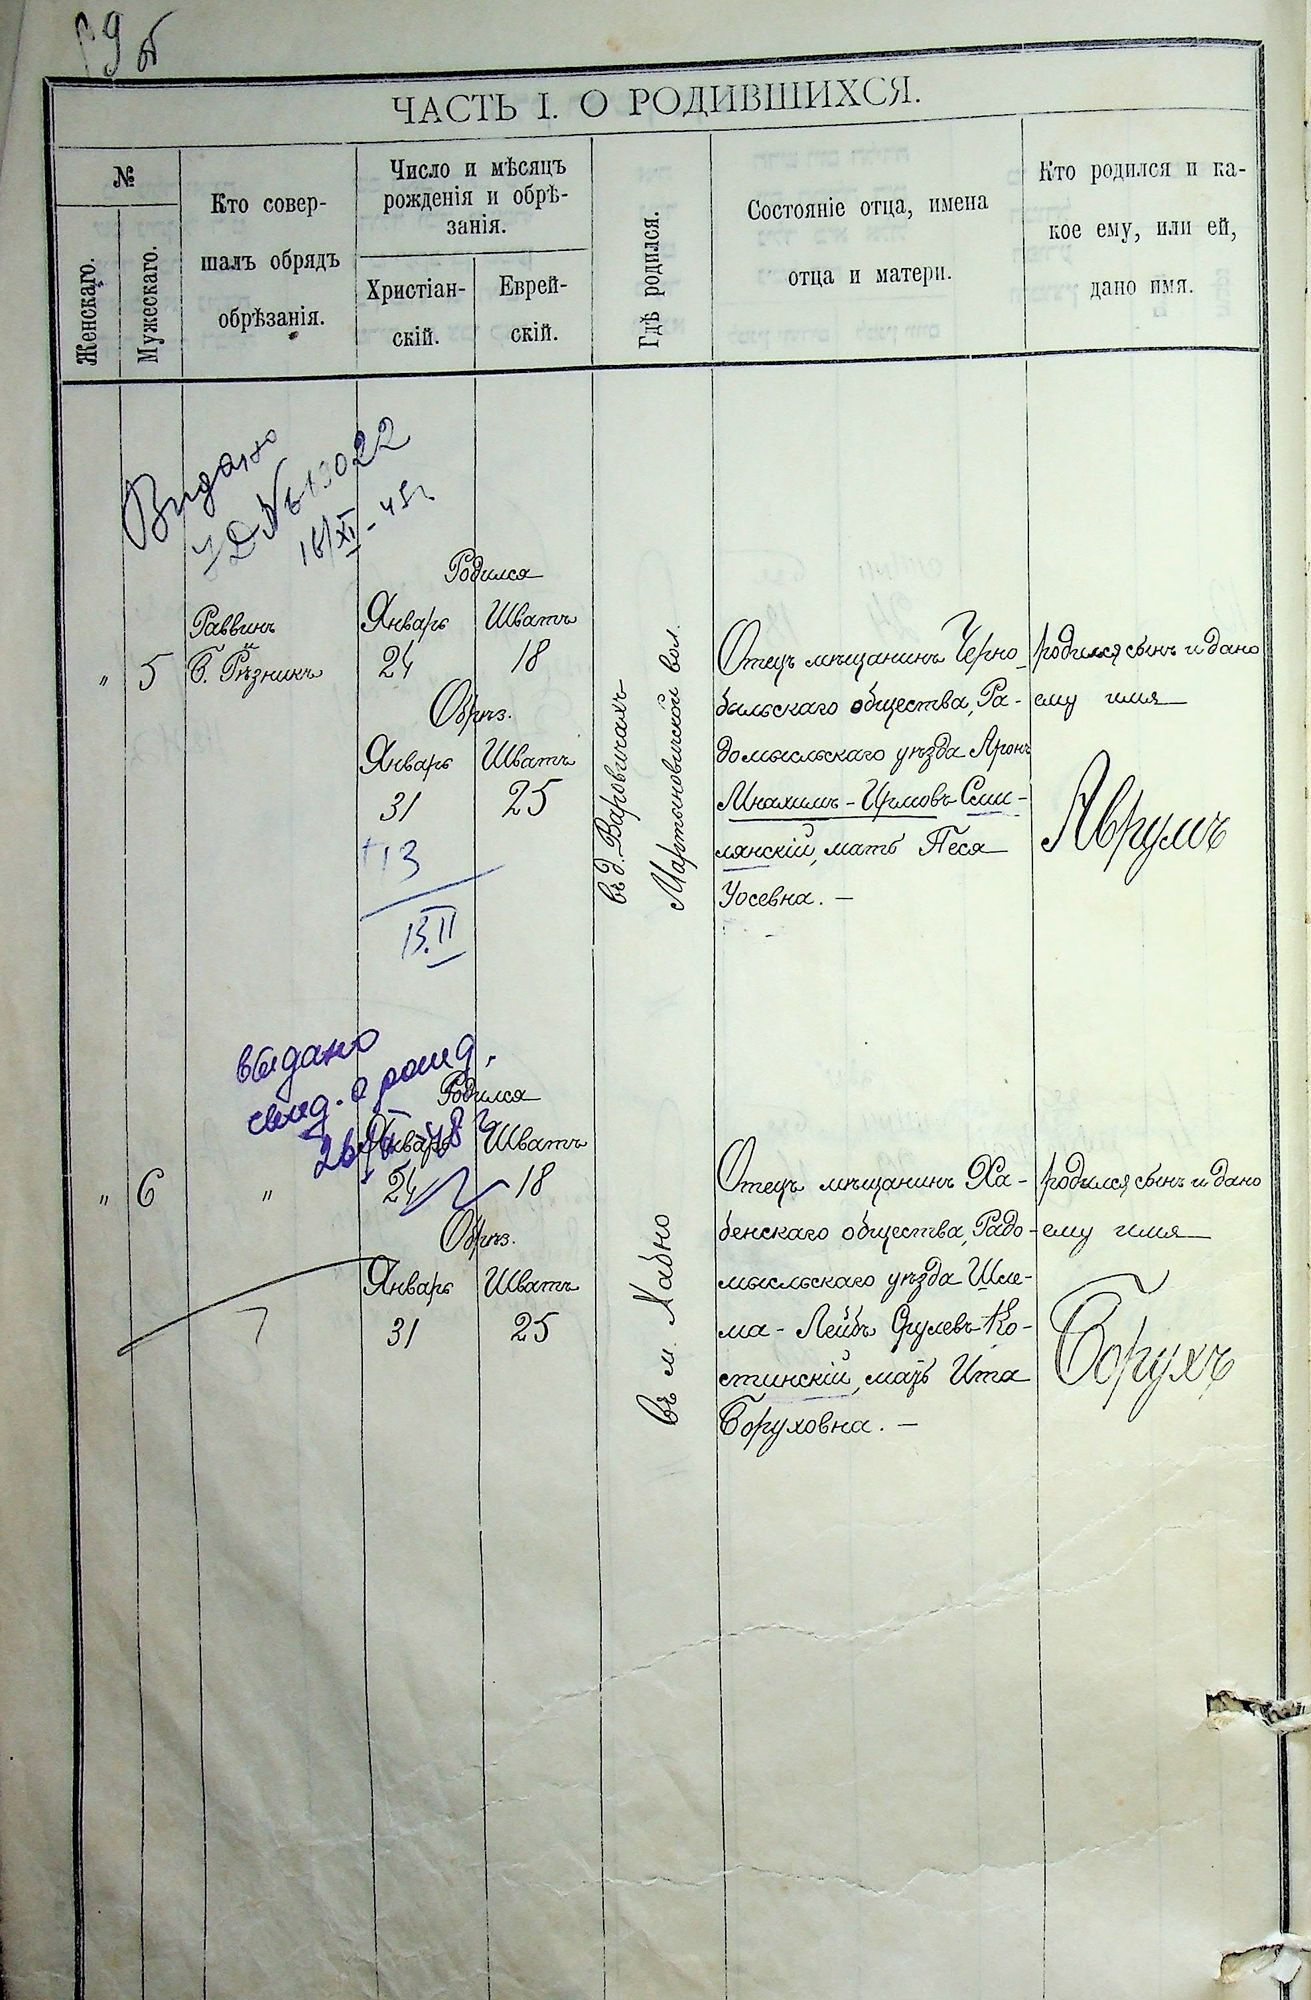 ЧАСТЬ I. О РОДИВШИХСЯ.
№
Женскаго.
Мужескаго.
Кто совер-
шалъ обрядъ
обрѣзанія.
Число и мѣсяцъ
рожденія и обрѣ-
занія.
Христіан-
скій.
Еврей-
скій.
Гдѣ родился.
Состояніе отца, имена
отца и матери.
Кто родился и ка-
кое ему, или ей,
дано имя.
Видано
18/XI - 45г
" 5
Раввинъ
Б. Рѣзникъ
Родился
Январь Шватъ
24 18
Обрѣз.
Январь Шватъ
31 25
13
13.II
въ д. Варовичахъ
Мартыновичской вол.
Отецъ мѣщанинъ Черно-
быльскаго общества, Ра-
домысльскаго уѣзда Аронъ
Мнахимъ-Ицковъ Сми-
лянскій, мать Песя
Йосевна. —
родился сынъ и дано
ему имя
Аврумъ
выдано
свид. о рожд.
" 6 "
Родился
Январь Шватъ
24 18
Обрѣз.
Январь Шватъ
31 25
въ м. Хабно
Отецъ мѣщанинъ Ха-
бенскаго общества, Радо-
мысльскаго уѣзда Шле-
ма-Лейбъ Срулевъ Ко-
стинскій, мать Ита
Боруховна. —
родился сынъ и дано
ему имя
Борухъ